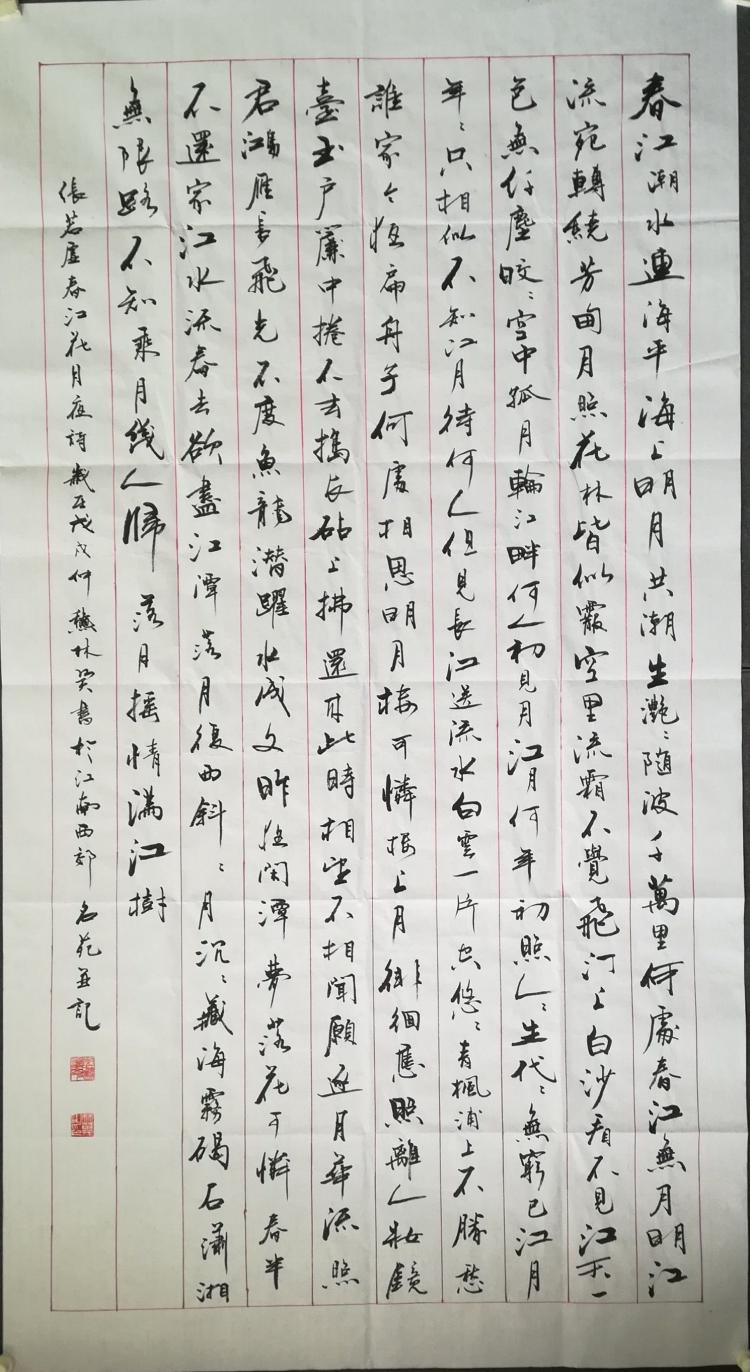 春江潮水連海平海上明月共潮生灔〻随波千萬里何處春江無月明江
流宛轉繞芳甸月照花林皆似霰空里流霜不覺飛汀上白沙看不見江天一
色無纤塵皎〻空中孤月輪江畔何人初見月江月何年初照人〻生代〻無窮已江月
年〻只相似不知江月待何人但見長江送流水白雲一片去悠〻青楓浦上不勝愁
誰家今夜扁舟子何處相思明月楼可憐楼上月徘徊應照離人妝鏡
臺玉户簾中捲不去搗衣砧上拂還来此時相望不相聞願逐月華流照
君鴻雁長飛光不度魚龍潜躍水成文昨夜閑潭夢落花可憐春半
不還家江水流春去欲盡江潭落月復西斜〻月沉〻藏海霧碣石瀟湘
無限路不知乘月幾人歸落月摇情满江樹
張若虚春江花月夜詩歲在戊戌仲 林 書於江南西郊名苑並記